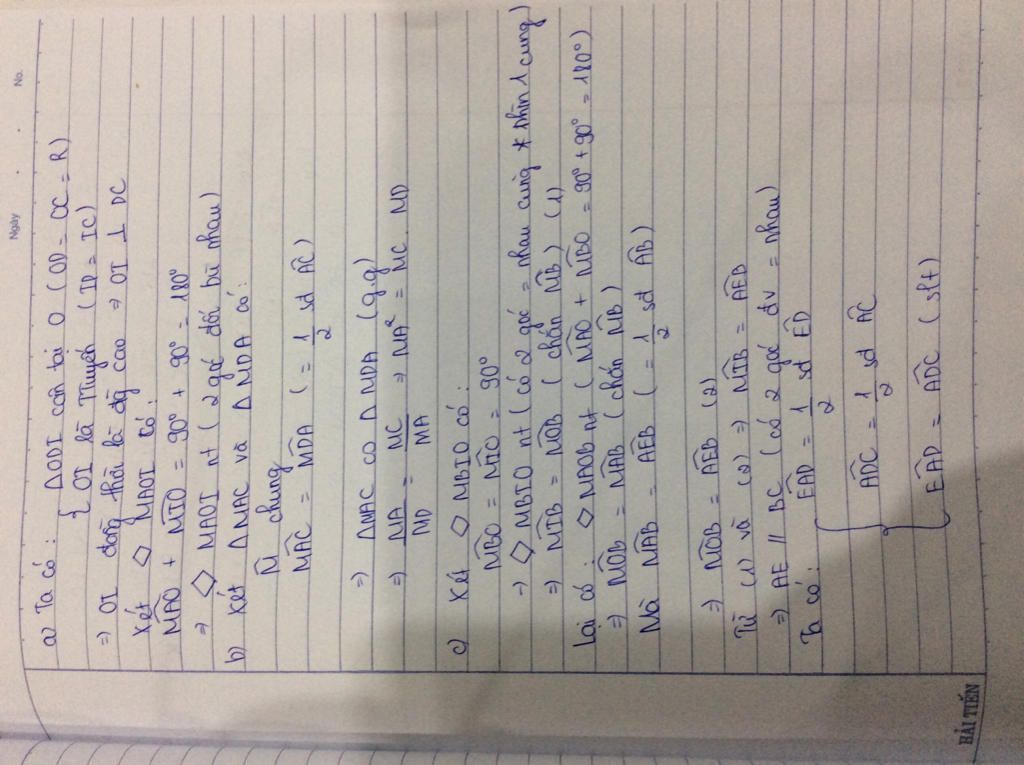 Ngày
No.
a) Ta có : ΔODI cân tại O (OD = OC = R)
{ OI là Tтuyến (ID = IC)
=> OI đồng thời là đg cao => OI ⊥ DC
Xét ◇ MAOI có:
MAO + MIO = 90° + 90° = 180°
=> ◇ MAOI nt ( 2 góc đối bù nhau)
b) Xét Δ MAC và Δ MDA có:
M chung
MAC = MDA ( = 1/2 sđ AC)
=> ΔMAC ∽ Δ MDA (g.g)
=> MA/MD = MC/MA => MA² = MC . MD
c) Xét ◇ MBIO có:
MBO = MIO = 90°
=> ◇ MBIO nt ( có 2 góc = nhau cùng nhìn 1 cung)
=> MIB = MOB ( chắn MB) (1)
Lại có : ◇ MAOB nt ( MAO + MBO = 90° + 90° = 180°)
=> MOB = MAB ( chắn MB)
Mà MAB = AEB ( = 1/2 sđ AB)
=> MOB = AEB (2)
Từ (1) và (2) => MIB = AEB
=> AE // BC (có 2 góc đv = nhau)
Ta có : EAD = 1/2 sđ ED
ADC = 1/2 sđ AC
EAD = ADC (slt)
HẢI TIẾN